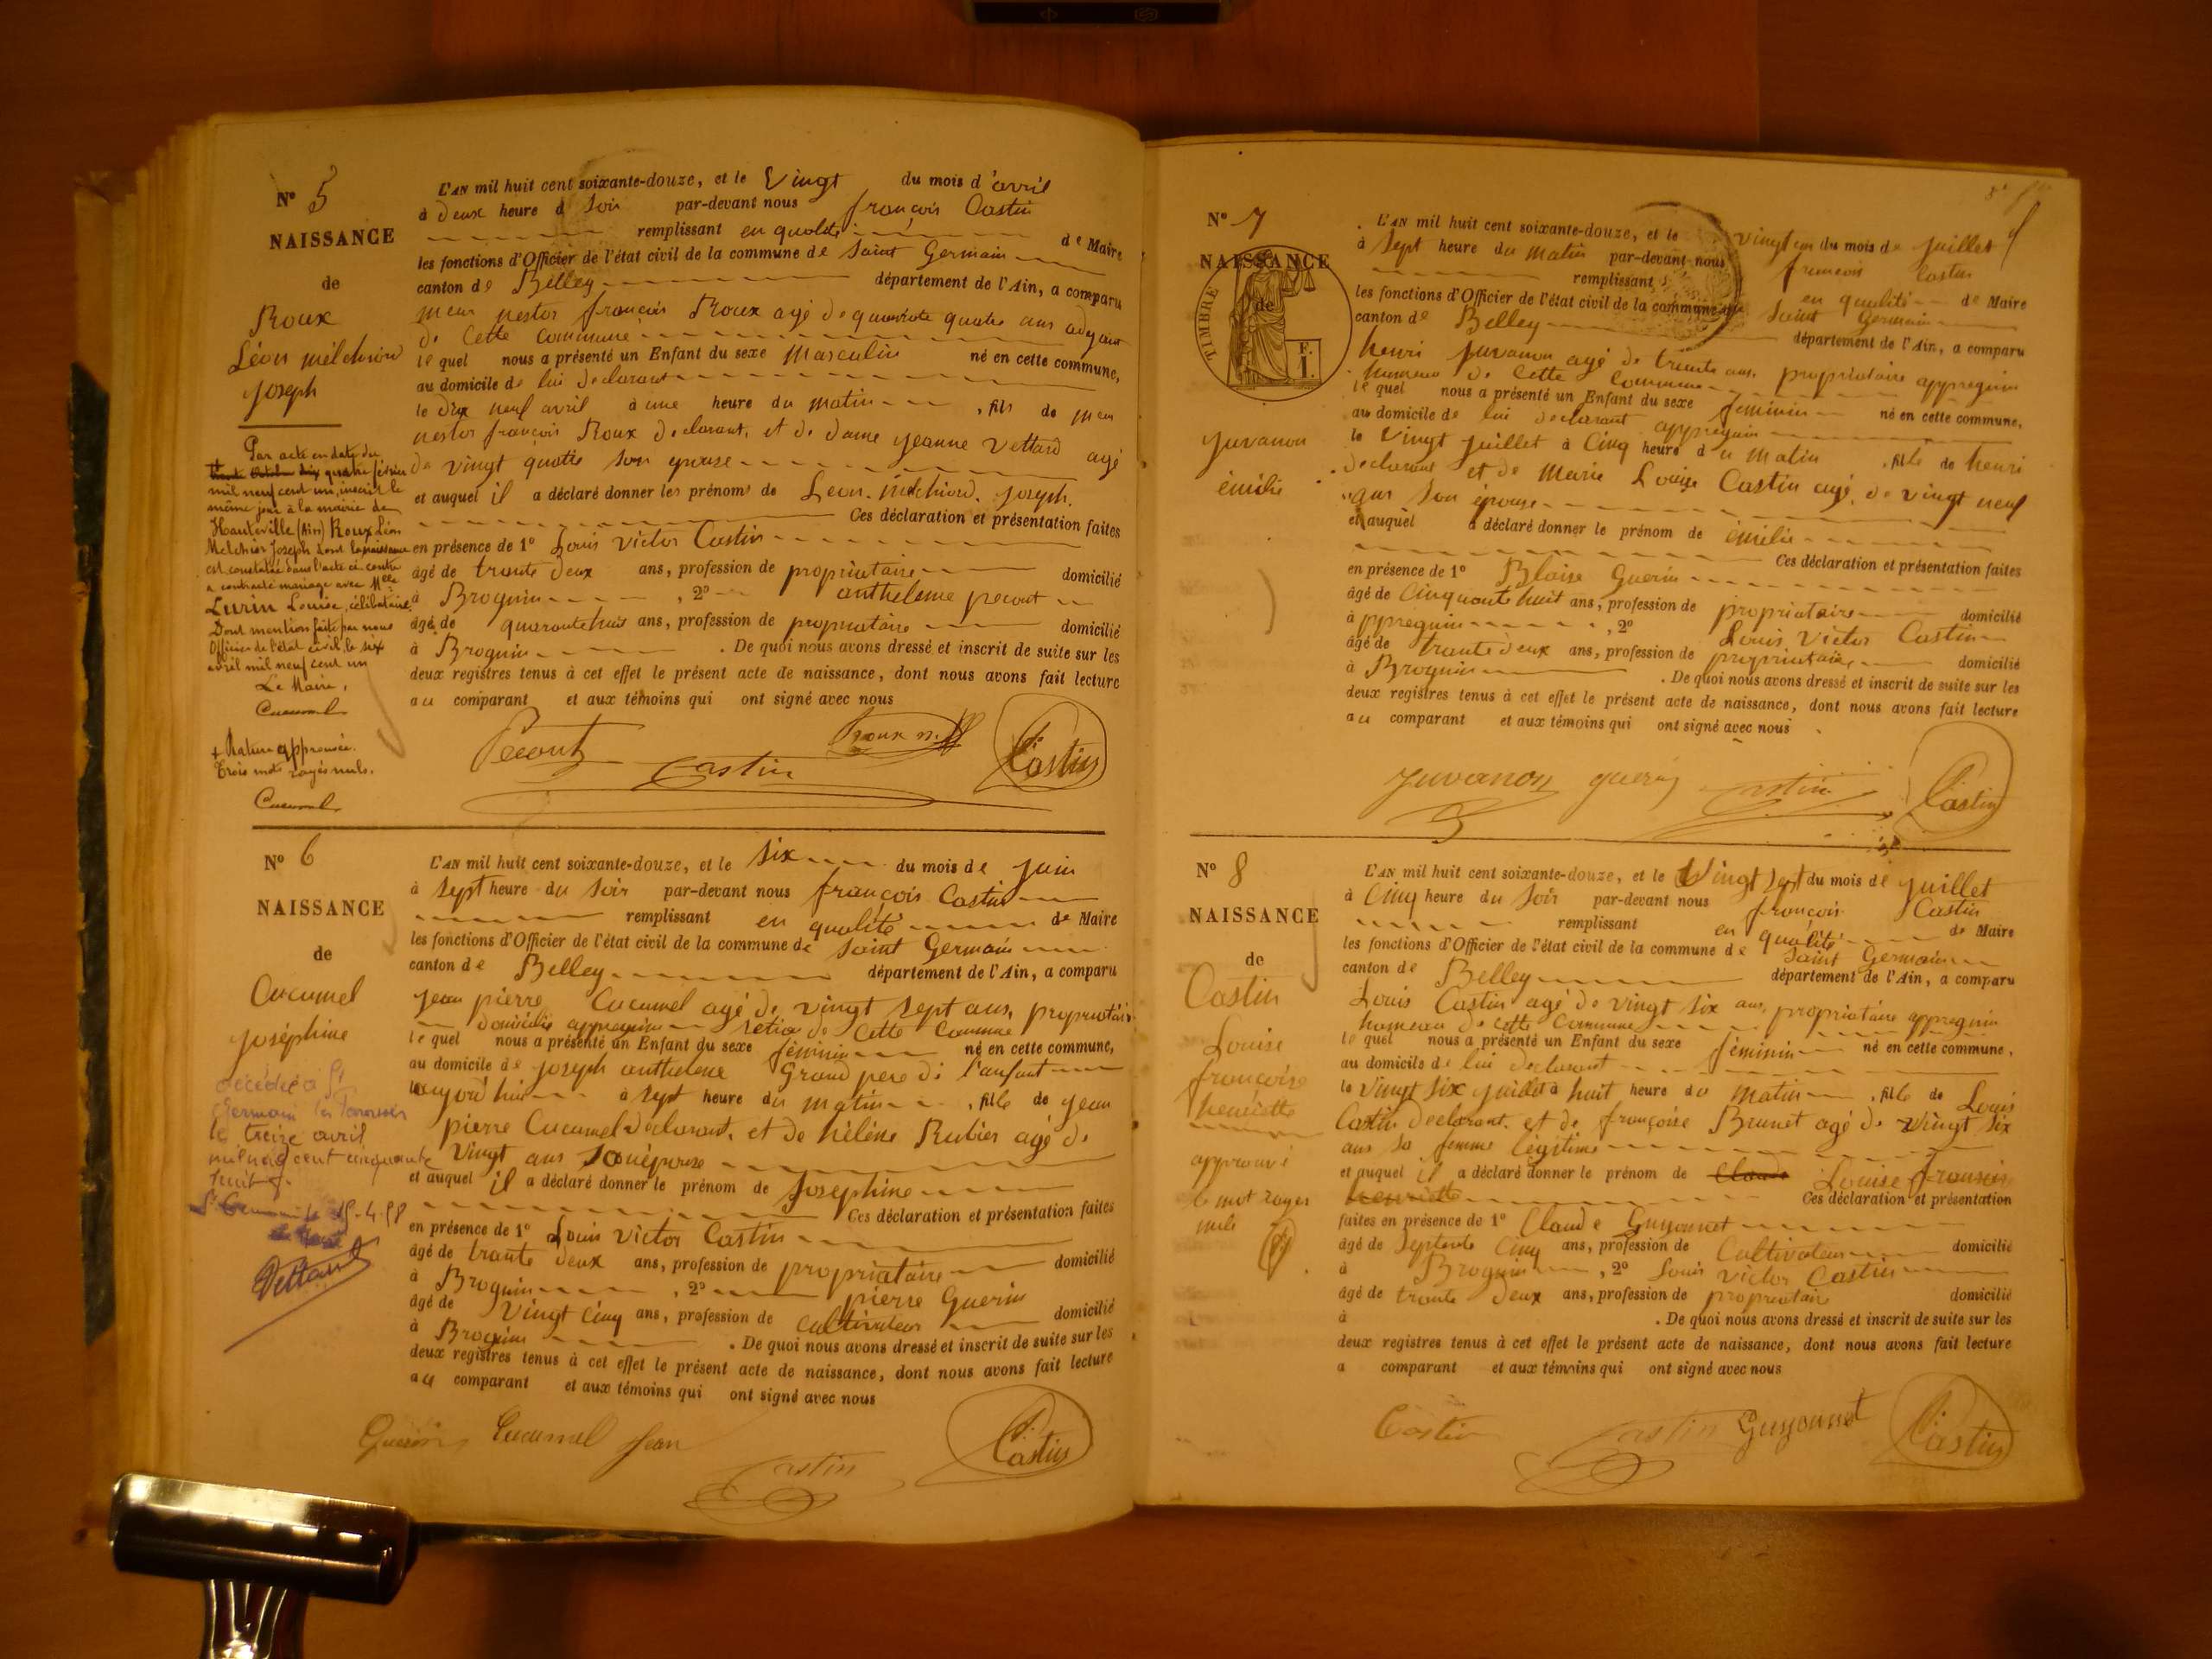 N° 5
NAISSANCE
de
Roux
Léon melchiord
joseph
Par acte en date du
quatre février
mil neuf cent un, inscrit le
même jour à la mairie de
Hauteville (Ain) Roux Léon
Melchior Joseph dont la naissance
est constatée dans l'acte ci-contre
a contracté mariage avec Melle
Lurin Louise, célibataire.
Dont mention faite par nous
Officier de l'état civil, le six
avril mil neuf cent un
Le Maire,
Cucumel
+ Rature approuvée.
Trois mots rayés nuls.
Cucumel
L'AN mil huit cent soixante-douze, et le Vingt du mois d'avril
à deux heure d Soir par-devant nous françois Castin
remplissant en qualité de Maire
les fonctions d'Officier de l'état civil de la commune de Saint Germain
canton de Belley département de l'Ain, a comparu
nestor françois Roux agé de quarante quatre ans
de Cette Commune
le quel nous a présenté un Enfant du sexe Masculin né en cette commune,
au domicile de lui declarant
le dix neuf avril à une heure du matin , fils de
nestor françois Roux declarant, et de dame jeanne Vettard agé
de vingt quatre Son epouse
et auquel il a déclaré donner les prénoms de Léon. melchiord. joseph.
Ces déclaration et présentation faites
en présence de 1° Louis Victor Castin
âgé de trante deux ans, profession de propriataire domicilié
à Brognin , 2° anthelme pecout
âgé de quarante huis ans, profession de propriataire domicilié
à Brognin . De quoi nous avons dressé et inscrit de suite sur les
deux registres tenus à cet effet le présent acte de naissance, dont nous avons fait lecture
au comparant et aux témoins qui ont signé avec nous
Pecout Castin Roux n. Castin
N° 6
NAISSANCE
de
Cucumel
joséphine
décédée à St
Germain les Paroisses
le treize avril
mil neuf cent cinquante
huit
15-4-58
L'AN mil huit cent soixante-douze, et le Six du mois de juin
à Sept heure du Soir par-devant nous françois Castin
remplissant en qualité de Maire
les fonctions d'Officier de l'état civil de la commune de Saint Germain
canton de Belley département de l'Ain, a comparu
jean pierre Cucumel agé de vingt Sept ans, propriataire
domicilié appregnin Section de Cette Commune
le quel nous a présenté un Enfant du sexe féminin né en cette commune,
au domicile de joseph anthelme Grand pere de l'anfant
aujourd'hui à Sept heure du matin , fille de jean
pierre Cucumel declarant, et de hélène Rubier agé de
Vingt ans Son épouse
et auquel il a déclaré donner le prénom de Joséphine
Ces déclaration et présentation faites
en présence de 1° Louis Victor Castin
âgé de trante deux ans, profession de propriataire domicilié
à Brognin , 2° pierre Guerin
âgé de Vingt Cinq ans, profession de cultivateur domicilié
à Brognin . De quoi nous avons dressé et inscrit de suite sur les
deux registres tenus à cet effet le présent acte de naissance, dont nous avons fait lecture
au comparant et aux témoins qui ont signé avec nous
Guerin Cucumel Jean Castin Castin
N° 7
NAISSANCE
de
TIMBRE
F.
1.
juvanon
émilie
L'AN mil huit cent soixante-douze, et le vingt un du mois de juillet
à Sept heure du matin par-devant nous françois Castin
remplissant en qualité de Maire
les fonctions d'Officier de l'état civil de la commune de Saint Germain
canton de Belley département de l'Ain, a comparu
henri juvanon agé de trante ans, propriataire appregnin
hameau de Cette Commune
le quel nous a présenté un Enfant du sexe féminin né en cette commune,
au domicile de lui declarant appregnin
le Vingt juillet à Cinq heure du matin , fille de henri
declarant et de Marie Louise Castin agé. de vingt neuf
ans Son épouse
et auquel a déclaré donner le prénom de émilie
Ces déclaration et présentation faites
en présence de 1° Blaise Guerin
âgé de Cinquante huit ans, profession de propriataire domicilié
à ppregnin , 2° Louis Victor Castin
âgé de trante deux ans, profession de propriataire domicilié
à Brognin . De quoi nous avons dressé et inscrit de suite sur les
deux registres tenus à cet effet le présent acte de naissance, dont nous avons fait lecture
au comparant et aux témoins qui ont signé avec nous
Juvanon guerin Castin Castin
N° 8
NAISSANCE
de
Castin
Louise
françoise
henriette
approuvé
le mot rayer
nule
L'AN mil huit cent soixante-douze, et le Vingt Sept du mois de juillet
à Cinq heure du Soir par-devant nous françois Castin
remplissant en qualité de Maire
les fonctions d'Officier de l'état civil de la commune de Saint Germain
canton de Belley département de l'Ain, a comparu
Louis Castin agé de vingt Six ans, propriataire appregnin
hameau de cette Commune
le quel nous a présenté un Enfant du sexe féminin né en cette commune,
au domicile de lui declarant
le Vingt Six juillet à huit heure du matin , fille de Louis
Castin declarant. et de françoise Brunet agé de Vingt Six
ans Sa femme légitime
et auquel il a déclaré donner le prénom de Louise
henriette Ces déclaration et présentation
faites en présence de 1° Claude Guyonnet
âgé de Septante Cinq ans, profession de Cultivateur domicilié
à Brognin , 2° Louis Victor Castin
âgé de trante deux ans, profession de propriataire domicilié
à . De quoi nous avons dressé et inscrit de suite sur les
deux registres tenus à cet effet le présent acte de naissance, dont nous avons fait lecture
a comparant et aux témoins qui ont signé avec nous
Castin Castin Guyonnet Castin